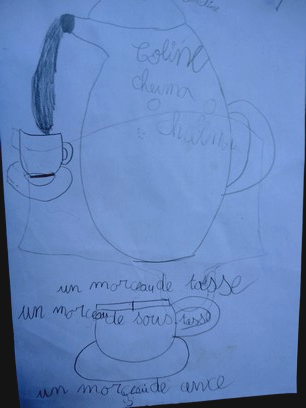 Coline
cheima
un morceau de tasse
un morceau de sous tasse
un morceau de anse